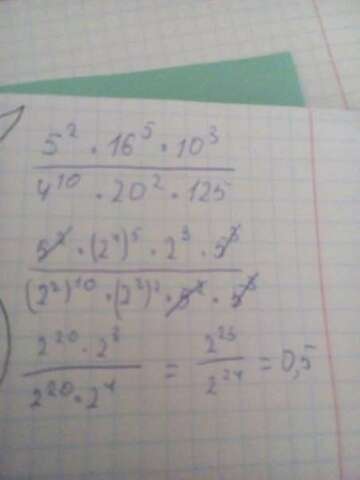 5² · 16⁵ · 10³
4¹⁰ · 20² · 125
5² · (2⁴)⁵ · 2³ · 5³
(2²)¹⁰ · (2²)² · 5² · 5³
2²⁰ · 2³ / 2²⁰ · 2⁴ = 2²³ / 2²⁴ = 0,5